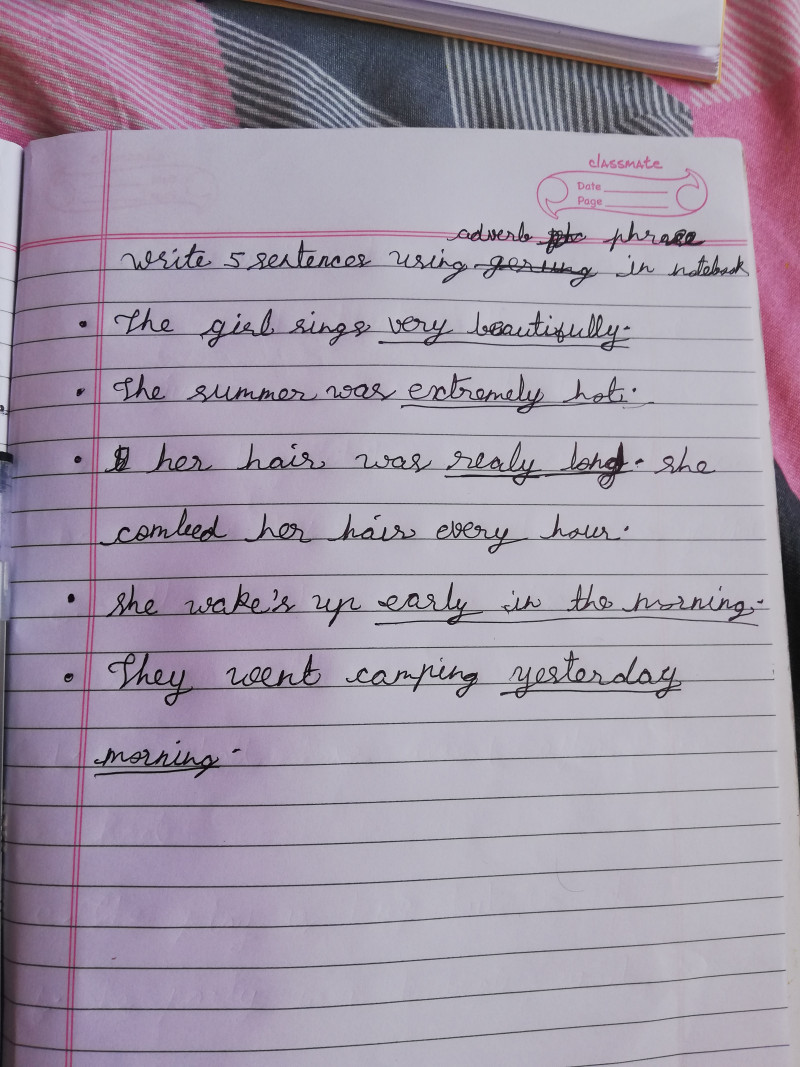 classmate
Date
Page
adverb phrase
write 5 sentences using in notebook
• The girl sings very beautifully.
• The summer was extremely hot.
• her hair was realy long. she
combed her hair every hour.
• she wake's up early in the morning.
• They went camping yesterday
morning.